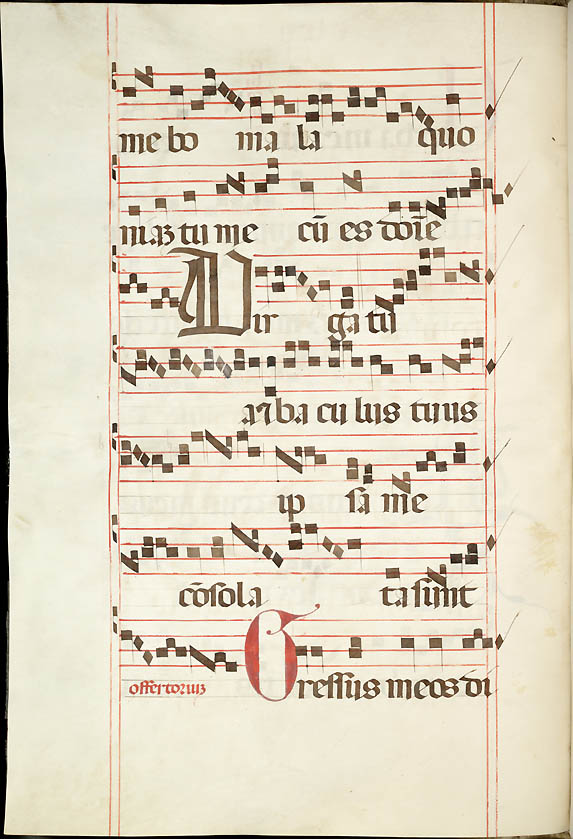 me bo ma la quo
niaz tu me cū es do ie
Vir ga tu
a ba cu lus tuus
ip sa me
cōsola ta sunt
offertoriuz Gressus meos di